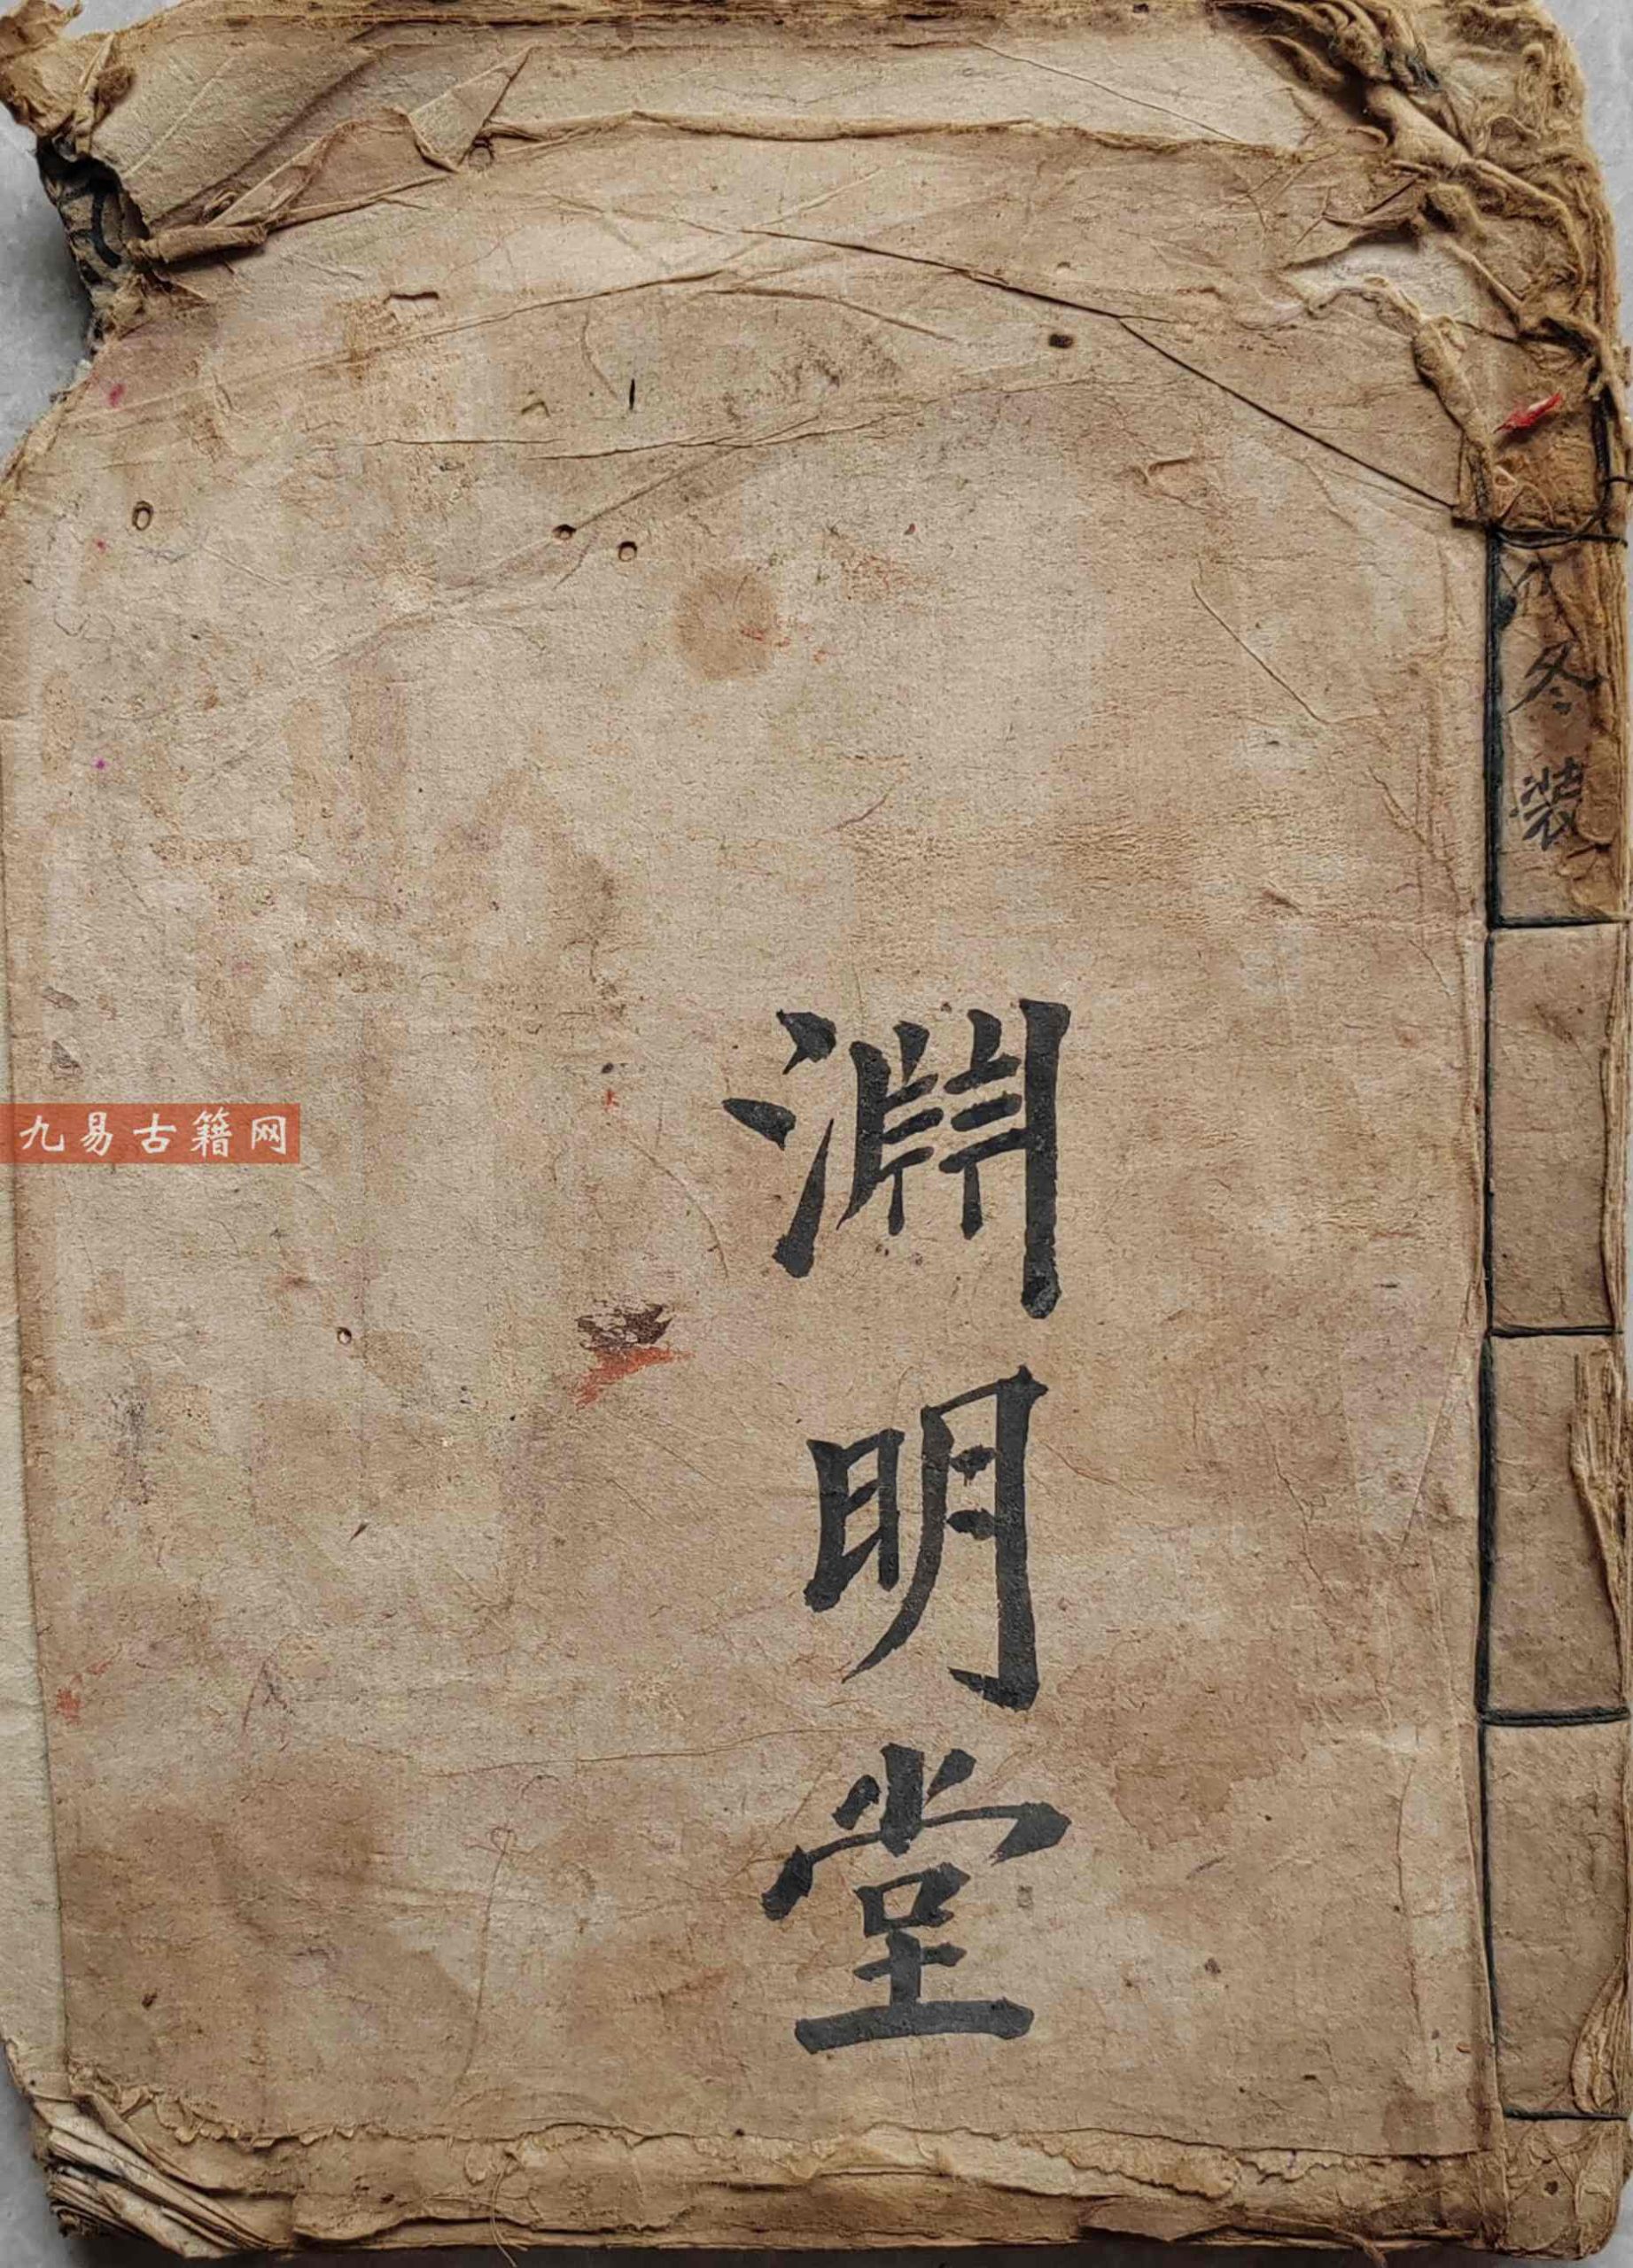 冬裝
淵明堂
九易古籍网